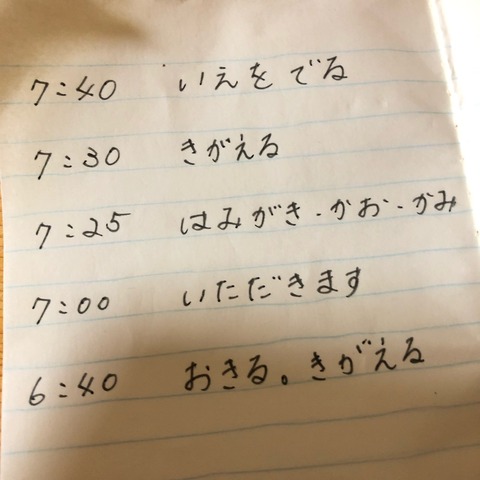 7:40 いえをでる
7:30 きがえる
7:25 はみがき・かお・かみ
7:00 いただきます
6:40 おきる。きがえる